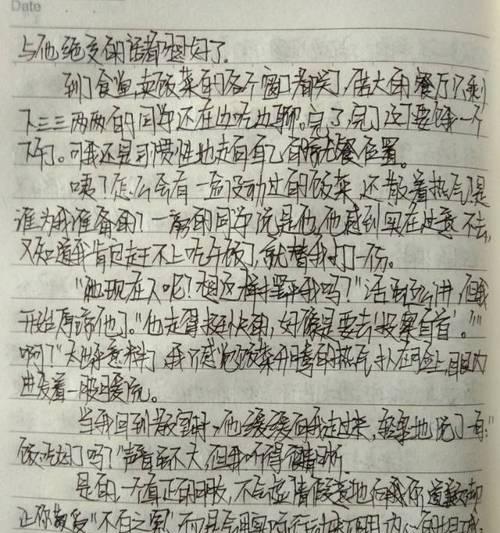 Date
与他绝交的话都想好了。
到了食堂,卖饭菜的各个窗口都关了,偌大的餐厅只剩
下三三两两的同学还在边吃边聊。完了完了这要饿一个
下午了。可我还是习惯性地走向自己的就餐位置。
咦?怎么会有一盒没动过的饭菜,还散着热气?是
谁为我准备的?一旁的同学说是他,他感到实在过意不去,
又知道我肯定赶不上吃午饭了,就替我打了一份。
"他现在人呢?想这样罪我吗?"话是这么讲,但我
开始原谅他了。"他走得挺快的,好像是要去'投案自首'。"
啊?大出意料了,我只感觉饭菜升腾的热气扑在脸上,眼内
进发着一股暖流。
当我回到教室时,他缓缓向我走过来,轻轻地说了一句:
饭吃了吗?"声音虽不大,但我听得很清晰。
是的,一个真正的朋友,不会虚情假意地行
让你